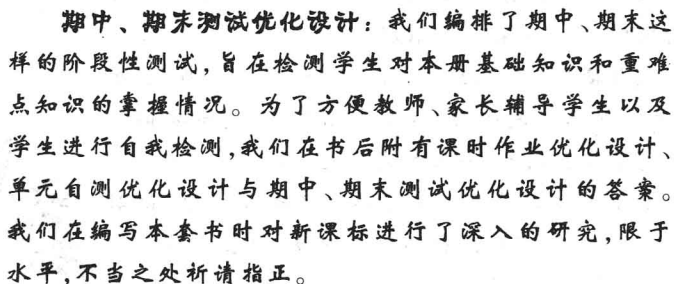 期中、期末测试优化设计：我们编排了期中、期末这
样的阶段性测试，旨在检测学生对本册基础知识和重难
点知识的掌握情况。为了方便教师、家长辅导学生以及
学生进行自我检测，我们在书后附有课时作业优化设计、
单元自测优化设计与期中、期末测试优化设计的答案。
我们在编写本套书时对新课标进行了深入的研究，限于
水平，不当之处祈请指正。